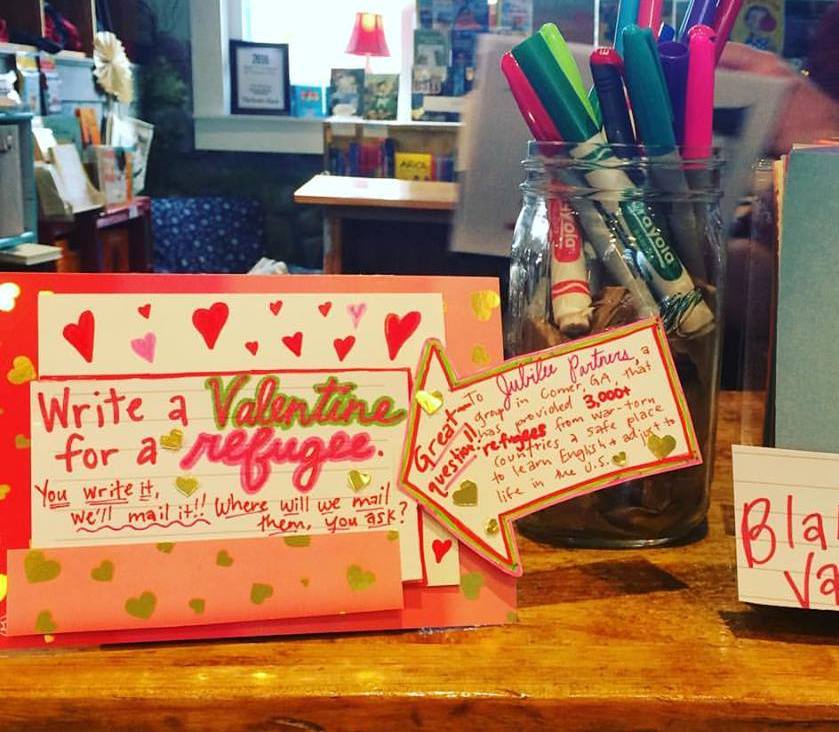 Write a Valentine
for a refugee.
You write it,
we'll mail it!! Where will we mail
them, you ask?
Great question!!
To Jubilee Partners, a
group in Comer, GA, that
has provided 3,000+
refugees from war-torn
countries a safe place
to learn English & adjust to
life in the U.S.
Crayola
Crayola
2016
Bla
Va